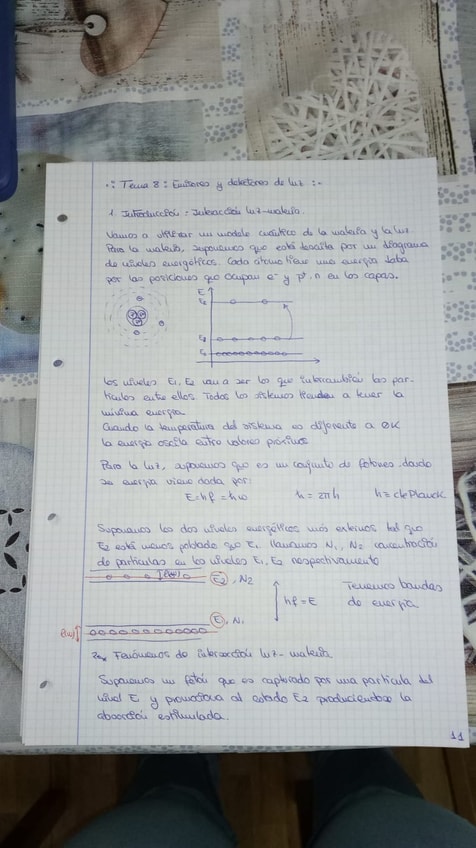 ·: Tema 8: Emisores y detectores de luz :·
1. Introducción: Interacción luz-materia.
Vamos a utilizar un modelo cuántico de la materia y la luz.
Para la materia, suponemos que está descrita por un diagrama
de niveles energéticos. Cada átomo tiene una energía dada
por las posiciones que ocupan e⁻ y p⁺, n en las capas.
E
E₂
E₁
E₀
Los niveles E₁, E₂ van a ser los que intercambien las par-
tículas entre ellos. Todos los sistemas tienden a tener la
mínima energía.
Cuando la temperatura del sistema es diferente a 0K
la energía oscila entre valores próximos.
Para la luz, suponemos que es un conjunto de fotones, donde
su energía viene dada por:
E=hf = ħω h = 2πħ h = cte Planck.
Suponemos los dos niveles energéticos más externos tal que
E₂ está menos poblado que E₁. Llamamos N₁, N₂ concentración
de partículas en los niveles E₁, E₂ respectivamente
E₂, N₂
hf = E
Tenemos bandas
de energía
E₁, N₁
Fenómenos de interacción luz-materia
Suponemos un fotón que es capturado por una partícula del
nivel E₁ y promociona al estado E₂ produciéndose la
absorción estimulada.
1.1